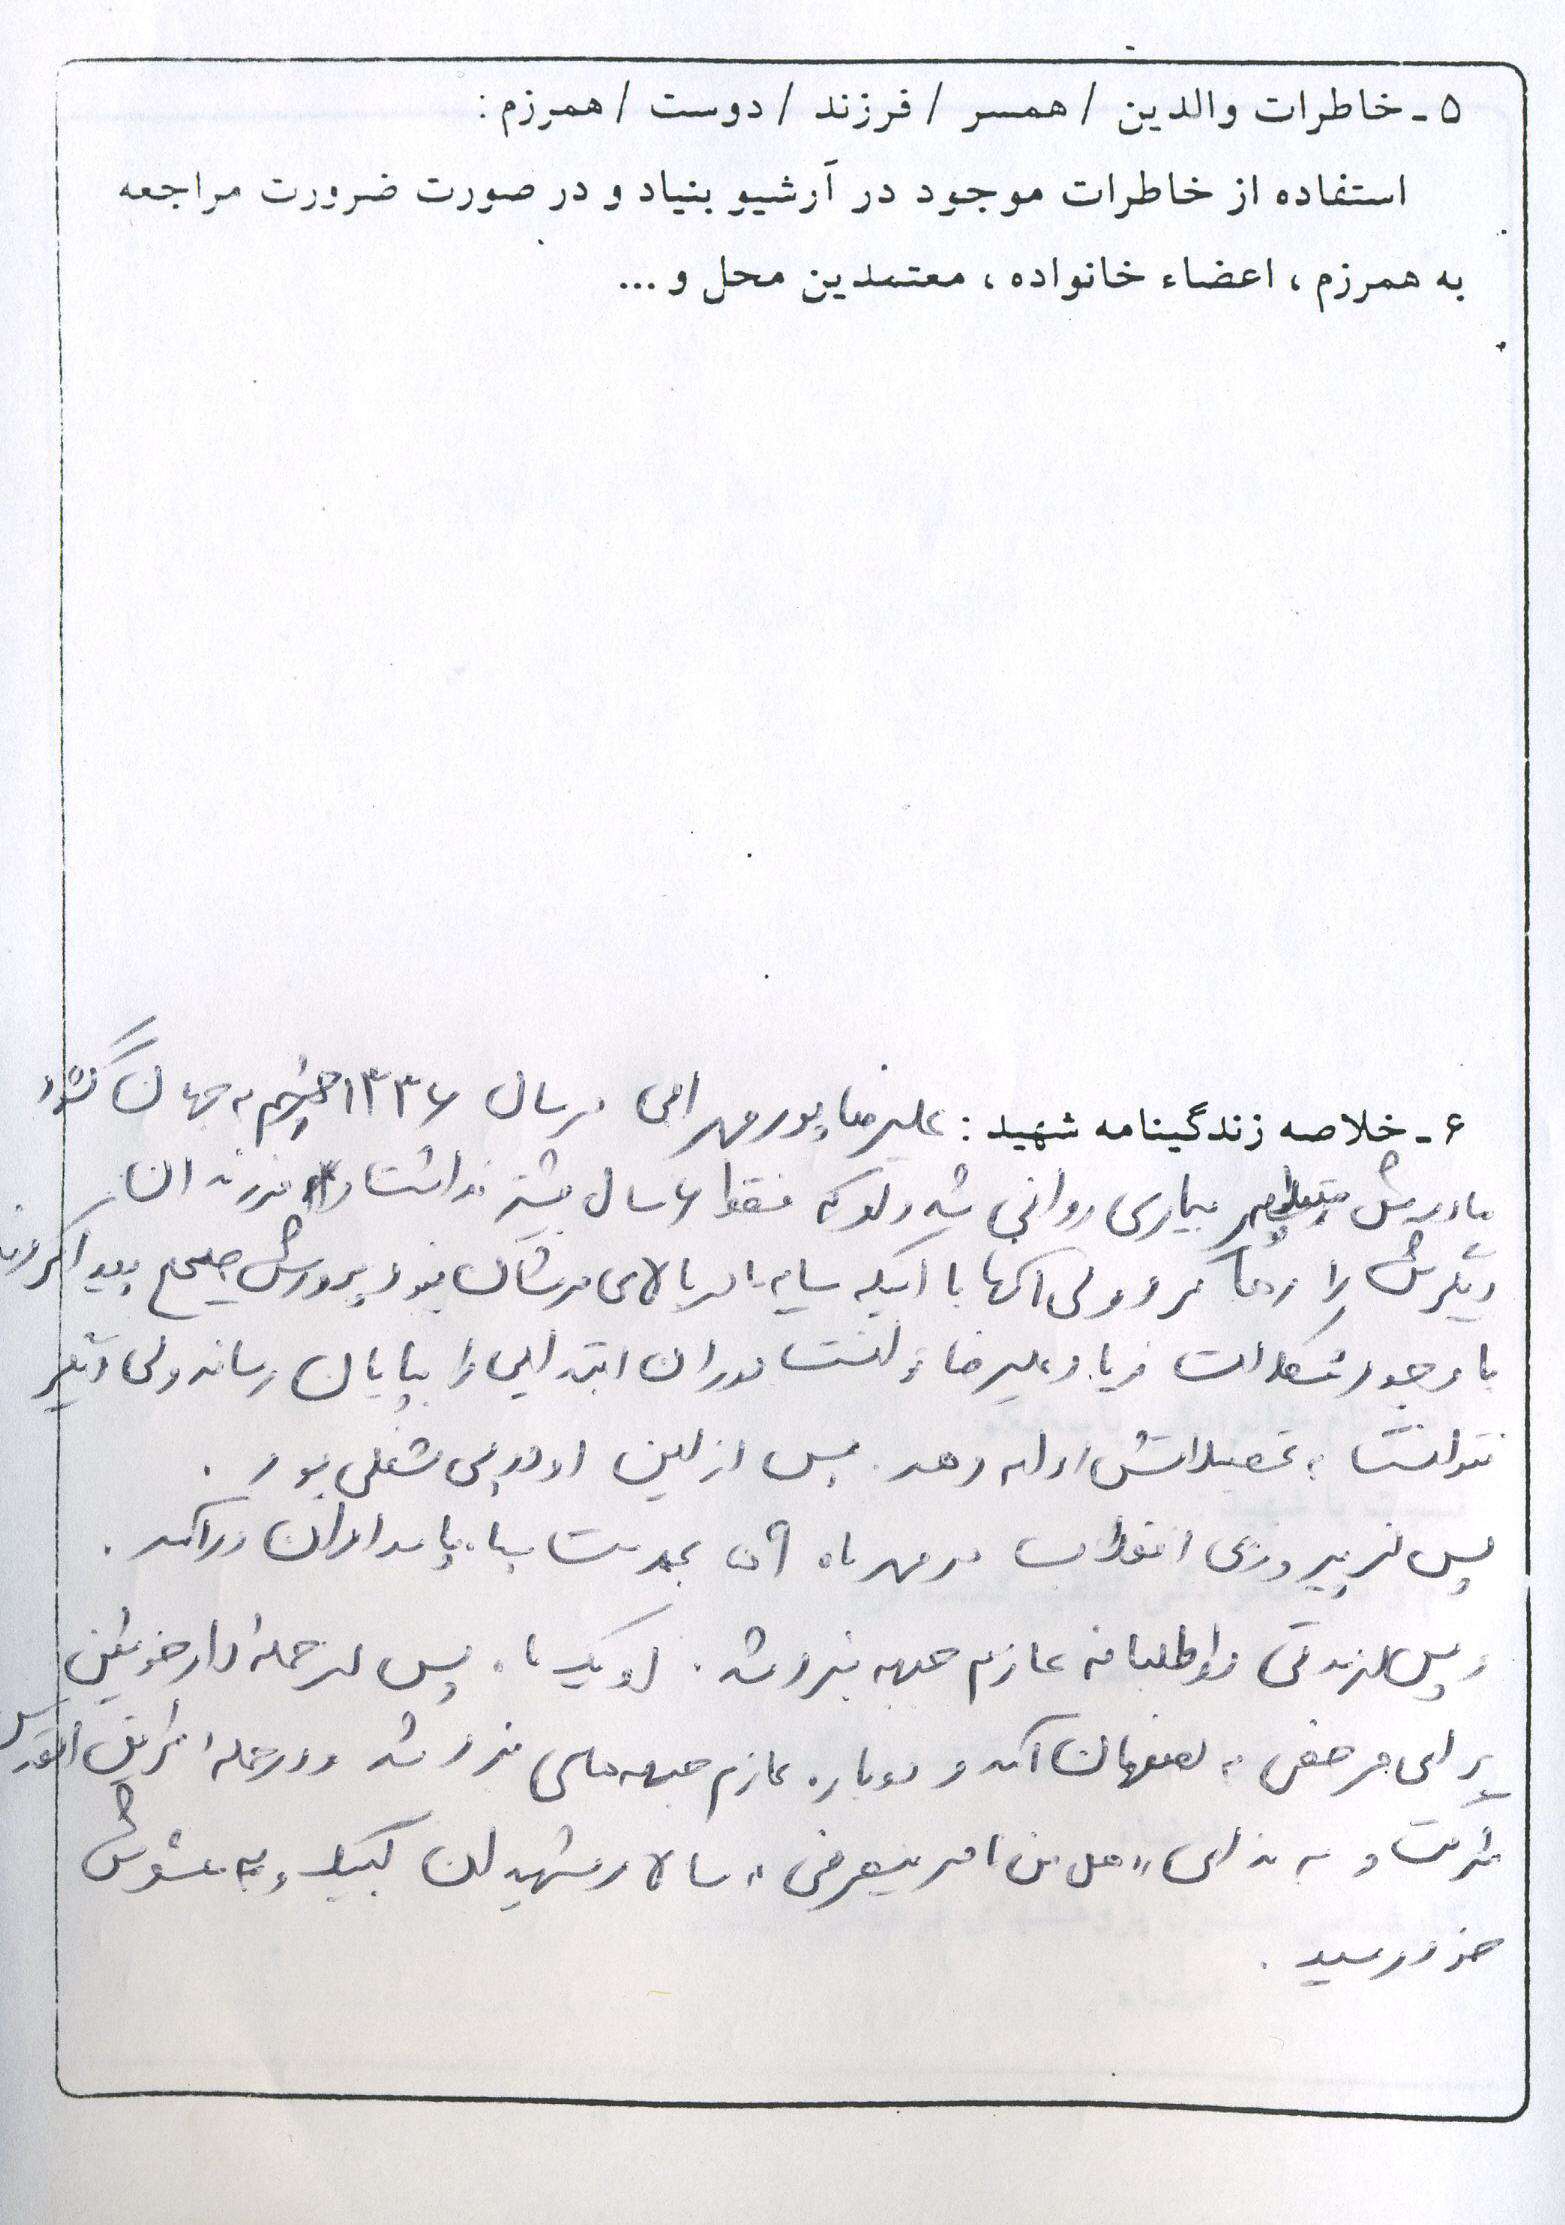 ۵ـ خاطرات والدین / همسر / فرزند / دوست / همرزم :
استفاده از خاطرات موجود در آرشیو بنیاد و در صورت ضرورت مراجعه
به همرزم ، اعضاء خانواده ، معتمدین محل و ...
۶ـ خلاصه زندگینامه شهید : علیرضا پورمهرابی در سال ۱۳۳۶ چشم به جهان گشود
مادرش بیماری روانی شد و او که فقط ۶ سال بیشتر نداشت و فرزندان
دیگرش را رها کرد ولی آنها با اینکه سایه مادر بالای سرشان نبود پرورش صحیح پیدا کردند
با وجود مشکلات زیاد علیرضا توانست دوران ابتدایی را بپایان رساند ولی دیگر
نتوانست به تحصیلاتش ادامه دهد . پس از این او در پی شغلی بود .
پس از پیروزی انقلاب در مهرماه ۵۹ بخدمت سپاه پاسداران درآمد .
و پس از مدتی داوطلبانه عازم جبهه نبرد شد . او یک ماه پس از حمله دارخوئین
برای مرخصی به اصفهان آمد و دوباره عازم جبهه های نبرد شد و در حمله طریق القدس
شرکت و به ندای " هل من ناصر ینصرنی " سالار شهیدان لبیک و به معشوقش
خود رسید .